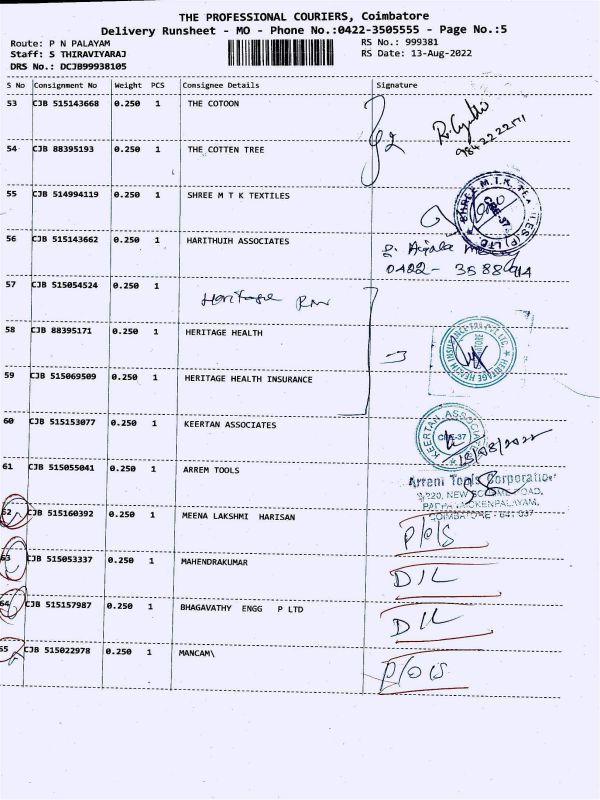 THE PROFESSIONAL COURIERS, Coimbatore
Delivery Runsheet - MO - Phone No.:0422-3505555 - Page No.:5
Route: P N PALAYAM RS No.: 999381
Staff: S THIRAVIYARAJ RS Date: 13-Aug-2022
DRS No.: DCJB99938105
S No Consignment No Weight PCS Consignee Details Signature
53 CJB 515143668 0.250 1 THE COTOON
54 CJB 88395193 0.250 1 THE COTTEN TREE
55 CJB 514994119 0.250 1 SHREE M T K TEXTILES
56 CJB 515143662 0.250 1 HARITHUIH ASSOCIATES
0422-
57 CJB 515054524 0.250 1 Heritage
58 CJB 88395171 0.250 1 HERITAGE HEALTH
59 CJB 515069509 0.250 1 HERITAGE HEALTH INSURANCE
60 CJB 515153077 0.250 1 KEERTAN ASSOCIATES
KEERTAN ASSOCIA
61 CJB 515055041 0.250 1 ARREM TOOLS
Arrem Tools Corporation
62 CJB 515160392 0.250 1 MEENA LAKSHMI HARISAN
COIMBATORE - 641 037
63 CJB 515053337 0.250 1 MAHENDRAKUMAR D/L
64 CJB 515157987 0.250 1 BHAGAVATHY ENGG P LTD D/L
65 CJB 515022978 0.250 1 MANCAM\